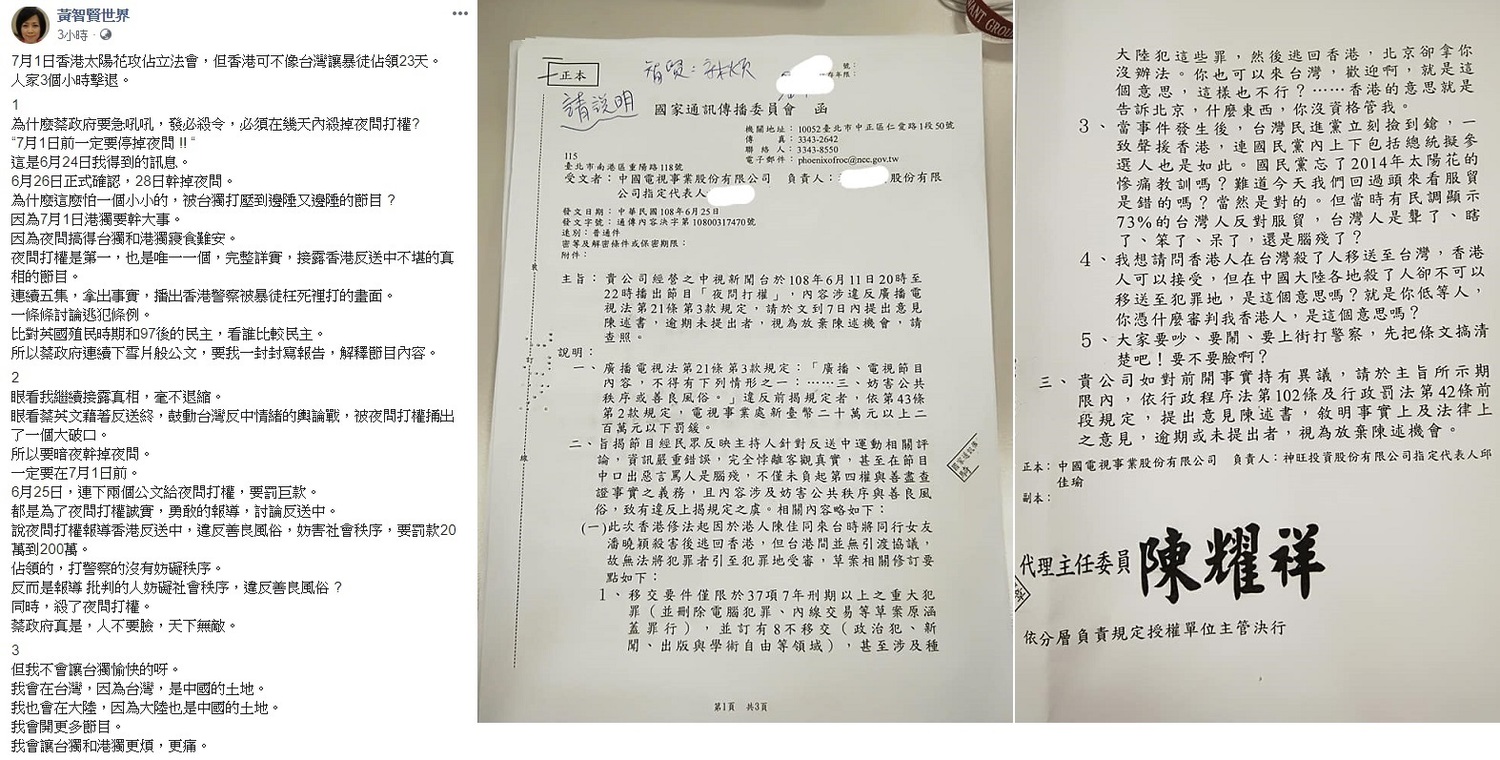 黃智賢世界
3小時
7月1日香港太陽花攻佔立法會，但香港可不像台灣讓暴徒佔領23天。
人家3個小時擊退。
1
為什麼蔡政府要急吼吼，發必殺令，必須在幾天內殺掉夜問打權?
“7月1日前一定要停掉夜問 !! “
這是6月24日我得到的訊息。
6月26日正式確認，28日幹掉夜問。
為什麼這麼怕一個小小的，被台獨打壓到邊陲又邊陲的節目？
因為7月1日港獨要幹大事。
因為夜問搞得台獨和港獨寢食難安。
夜問打權是第一，也是唯一一個，完整詳實，接露香港反送中不堪的真
相的節目。
連續五集，拿出事實，播出香港警察被暴徒枉死裡打的畫面。
一條條討論逃犯條例。
比對英國殖民時期和97後的民主，看誰比較民主。
所以蔡政府連續下雪片般公文，要我一封封寫報告，解釋節目內容。
2
眼看我繼續接露真相，毫不退縮。
眼看蔡英文藉著反送終，鼓動台灣反中情緒的輿論戰，被夜問打權捅出
了一個大破口。
所以要暗夜幹掉夜問。
一定要在7月1日前。
6月25日，連下兩個公文給夜問打權，要罰巨款。
都是為了夜問打權誠實，勇敢的報導，討論反送中。
說夜問打權報導香港反送中，違反善良風俗，妨害社會秩序，要罰款20
萬到200萬。
佔領的，打警察的沒有妨礙秩序。
反而是報導 批判的人妨礙社會秩序，違反善良風俗？
同時，殺了夜問打權。
蔡政府真是，人不要臉，天下無敵。
3
但我不會讓台獨愉快的呀。
我會在台灣，因為台灣，是中國的土地。
我也會在大陸，因為大陸也是中國的土地。
我會開更多節目。
我會讓台獨和港獨更煩，更痛。
正本
號：
年限：
請說明
國家通訊傳播委員會　函
機關地址：10052臺北市中正區仁愛路1段50號
傳　　真：3343-2642
聯 絡 人：3343-8550
電子郵件：phoenixofroc@ncc.gov.tw
115
臺北市南港區重陽路118號
受文者：中國電視事業股份有限公司　負責人：股份有限
公司指定代表人
發文日期：中華民國108年6月25日
發文字號：通傳內容決字第10800317470號
速別：普通件
密等及解密條件或保密期限：
附件：
主旨：貴公司經營之中視新聞台於108年6月11日20時至
22時播出節目「夜問打權」，內容涉違反廣播電
視法第21條第3款規定，請於文到7日內提出意見
陳述書，逾期未提出者，視為放棄陳述機會，請
查照。
說明：
一、廣播電視法第21條第3款規定：「廣播、電視節目
內容，不得有下列情形之一：……三、妨害公共
秩序或善良風俗。」違反前揭規定者，依第43條
第2款規定，電視事業處新臺幣二十萬元以上二
百萬元以下罰鍰。
二、旨揭節目經民眾反映主持人針對反送中運動相關評
論，資訊嚴重錯誤，完全悖離客觀真實，甚至在節目
中口出惡言罵人是腦殘，不僅未負起第四權與善盡查
證事實之義務，且內容涉及妨害公共秩序與善良風
俗，致有違反上揭規定之虞。相關內容略如下：
(一)此次香港修法起因於港人陳佳同來台時將同行女友
潘曉穎殺害後逃回香港，但台港間並無引渡協議，
故無法將犯罪者引至犯罪地受審，草案相關修訂要
點如下：
1、移交要件僅限於37項7年刑期以上之重大犯
罪（並刪除電腦犯罪、內線交易等草案原涵
蓋罪行），並訂有8不移交（政治犯、新
聞、出版與學術自由等領域），甚至涉及種
第1頁　共3頁
大陸犯這些罪，然後逃回香港，北京卻拿你
沒辦法。你也可以來台灣，歡迎啊，就是這
個意思，這樣也不行？……香港的意思就是
告訴北京，什麼東西，你沒資格管我。
3、當事件發生後，台灣民進黨立刻撿到鎗，一
致聲援香港，連國民黨內上下包括總統擬參
選人也是如此。國民黨忘了2014年太陽花的
慘痛教訓嗎？難道今天我們回過頭來看服貿
是錯的嗎？當然是對的。但當時有民調顯示
73%的台灣人反對服貿，台灣人是聾了、瞎
了、笨了、呆了，還是腦殘了？
4、我想請問香港人在台灣殺了人移送至台灣，香港
人可以接受，但在中國大陸各地殺了人卻不可以
移送至犯罪地，是這個意思嗎？就是你低等人，
你憑什麼審判我香港人，是這個意思嗎？
5、大家要吵、要鬧、要上街打警察，先把條文搞清
楚吧！要不要臉啊？
三、貴公司如對前開事實持有異議，請於主旨所示期
限內，依行政程序法第102條及行政罰法第42條前
段規定，提出意見陳述書，敘明事實上及法律上
之意見，逾期或未提出者，視為放棄陳述機會。
正本：中國電視事業股份有限公司　負責人：神旺投資股份有限公司指定代表人邱
佳瑜
副本：
代理主任委員 陳耀祥
依分層負責規定授權單位主管決行